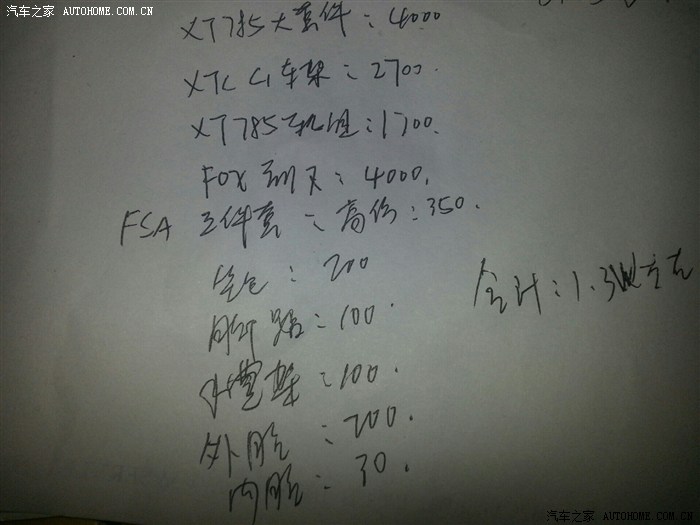 汽车之家 AUTOHOME.COM.CN
XT785大套件:4000
XTC C1车架:2700.
XT785轮组:1700.
FOX前叉:4000.
FSA 三件套:高仿:350.
坐包:200
脚踏:100.
水壶架:100.
外胎:200.
内胎:30.
合计:1.3W左右
汽车之家 AUTOHOME.COM.CN